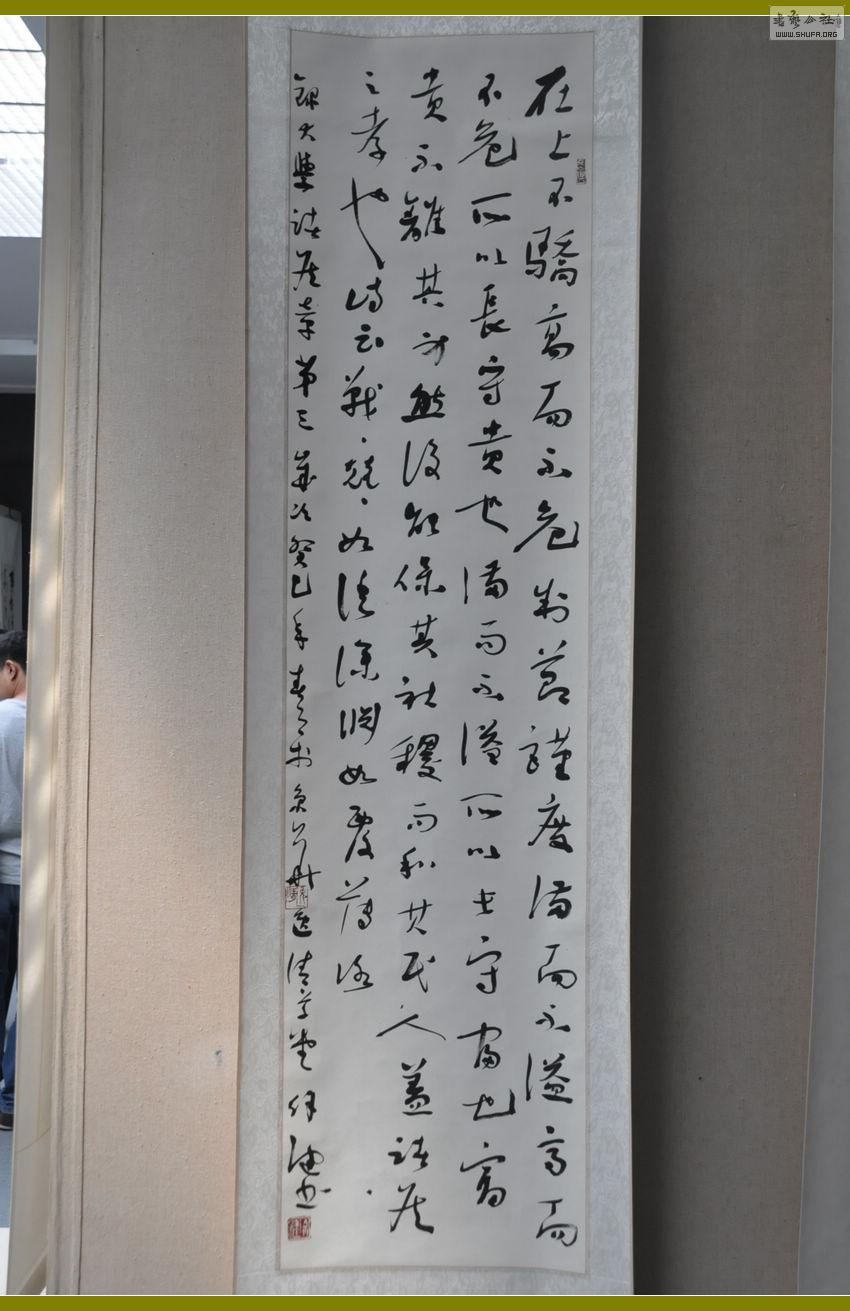 在上不驕高而不危制節謹度滿而不溢高而
不危所以長守貴也滿而不溢所以長守富也富
貴不離其身然後能保其社稷而和其民人蓋諸侯
之孝也詩云戰、兢、如臨深淵如履薄冰
錄大學諸侯章第三歲次癸巳年春於京
書藝公社
WWW.SHUFA.ORG